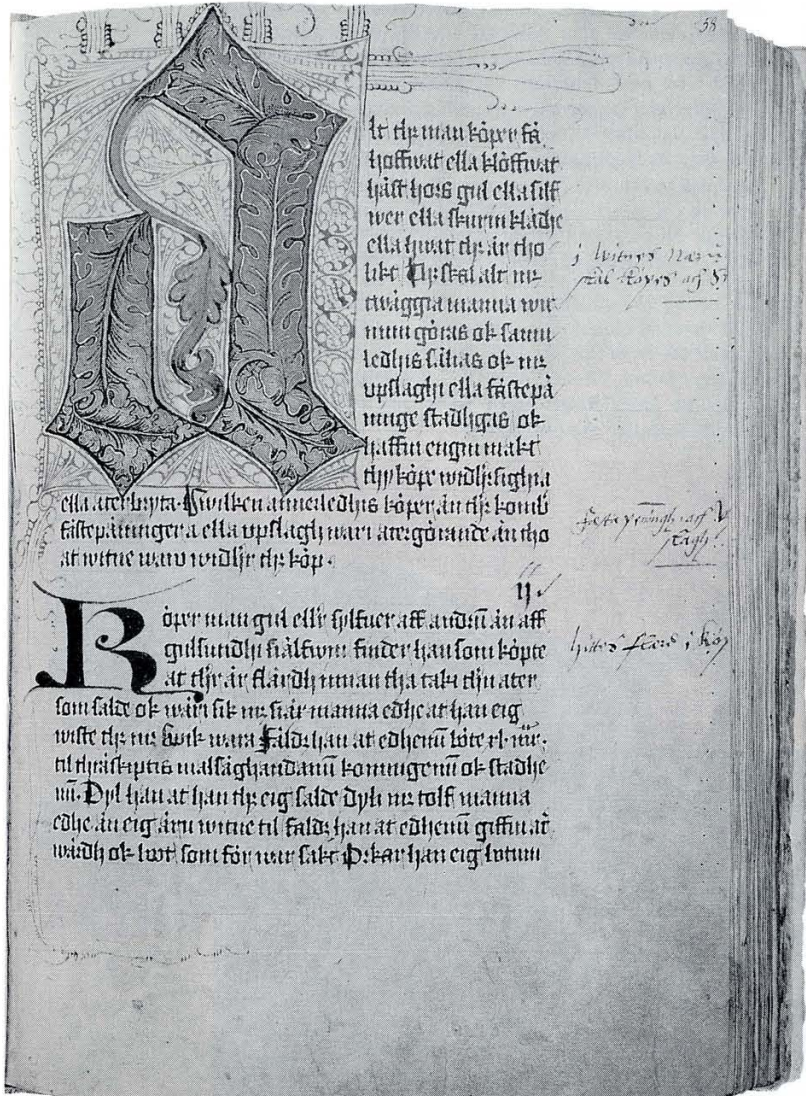 58
Alt thz man köper fä
hoffwat ella klöffwat
häst hors gul ella silff
wer ella skurin klädhe
ella hwat thz är tho
likt Thz skal alt mz
twäggia manna wit
num göras ok samu
ledhis sälias ok mz
vpslaghi ella fästepä
ninge stadhgas ok
haffui engin makt
thy köpe widhzsighia
ella aterbryta. hwilken annerledhis köper än thz komb
fästepänningera ella vpslagh wari atergörande än tho
at witne waro widhr thz köp.
ij
Köper man gul ellr sylfuer aff andrū än aff
gulsmidhi siälfwom finder han som köpte
at thz är flärdh innan tha taki thn ater
som salde ok wäri sik mz siäx manna edhe at han eig
wiste thz mz swik wara Faldz han at edhenū böte xl mr.
til thräskiptis malsäghandanū konungenū ok stadhe
nū. Dyl han at han thz eig salde dyli mz tolf manna
edhe än eig äru witne til faldz han at edhenū giffui at
wärdh ok bot som för war sakt Orkar han eig botum
i witnes
skal köpes
fästepenningh
slagh
hittes flerd i köp